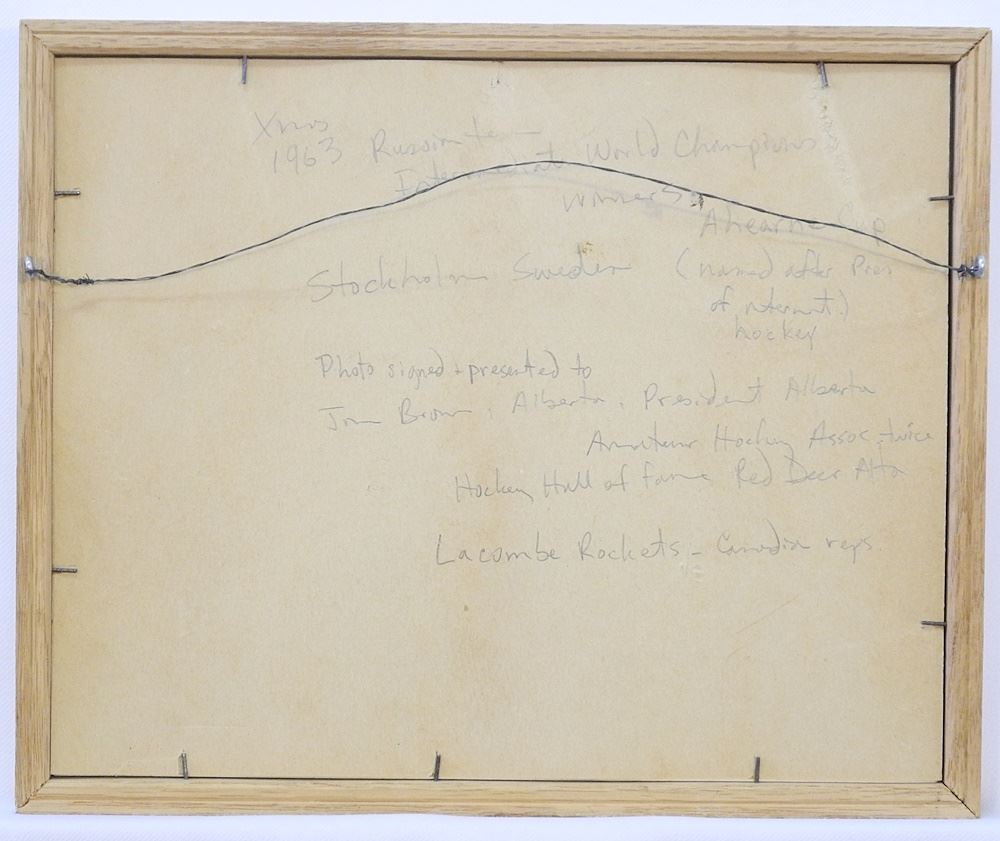 Xmas
1963 Russian te
Intermediate World Champions
winners.
Ahearne Cup
Stockholm Sweden (named after Pres
of internat.)
hockey
Photo signed + presented to
Jim Brown, Alberta, President Alberta
Amateur Hockey Assoc. twice
Hockey Hall of Fame Red Deer Alta
Lacombe Rockets - Canadia reps.